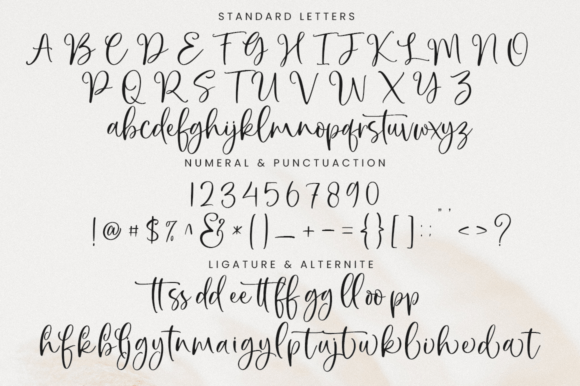 STANDARD LETTERS
A B C D E F G H I J K L M N O
P Q R S T U V W X Y Z
abcdefghijklmnopqrstuvwxyz
NUMERAL & PUNCTUACTION
1 2 3 4 5 6 7 8 9 0
! @ # $ % ^ & * ( ) _ + - = { } [ ] : ; " ' < > ?
LIGATURE & ALTERNITE
tt ss dd ee tt ff gg ll oo pp